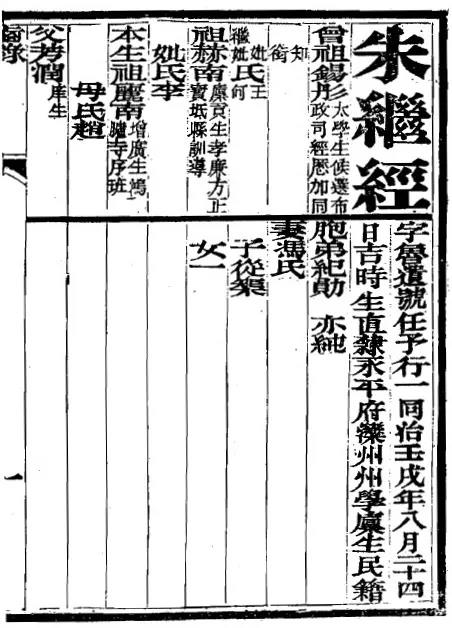 朱繼經
字魯遺號任予行一同治壬戌年八月二十四
日吉時生直隸永平府灤州州學廩生民籍
曾祖錫彤 太學生候選布
政司經歷加同
知
銜
妣氏王
繼妣氏何
祖赫南 廩貢生孝廉方正
寶坻縣訓導
妣氏李
本生祖麗南 增廣生鴻
臚寺序班
母氏趙
父芳潤 庠生
胞弟紀勛 亦純
妻馮氏
子從榘
女一
齒錄
一